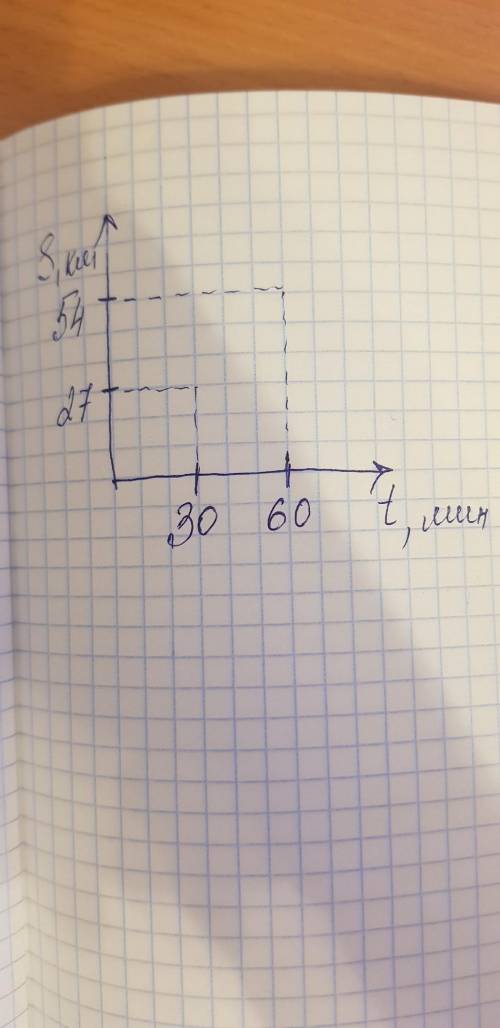 S, км
54
27
30 60 t, мин